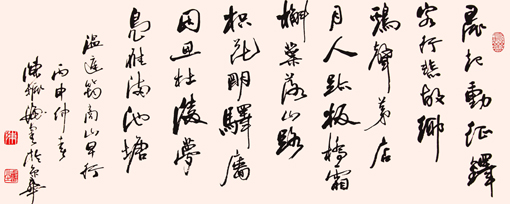 晨起動征鐸
客行悲故鄉
鷄聲茅店
月人跡板橋霜
槲葉落山路
枳花明驛牆
因思杜陵夢
鳧雁滿池塘
溫庭筠商山早行
丙申仲春
陳